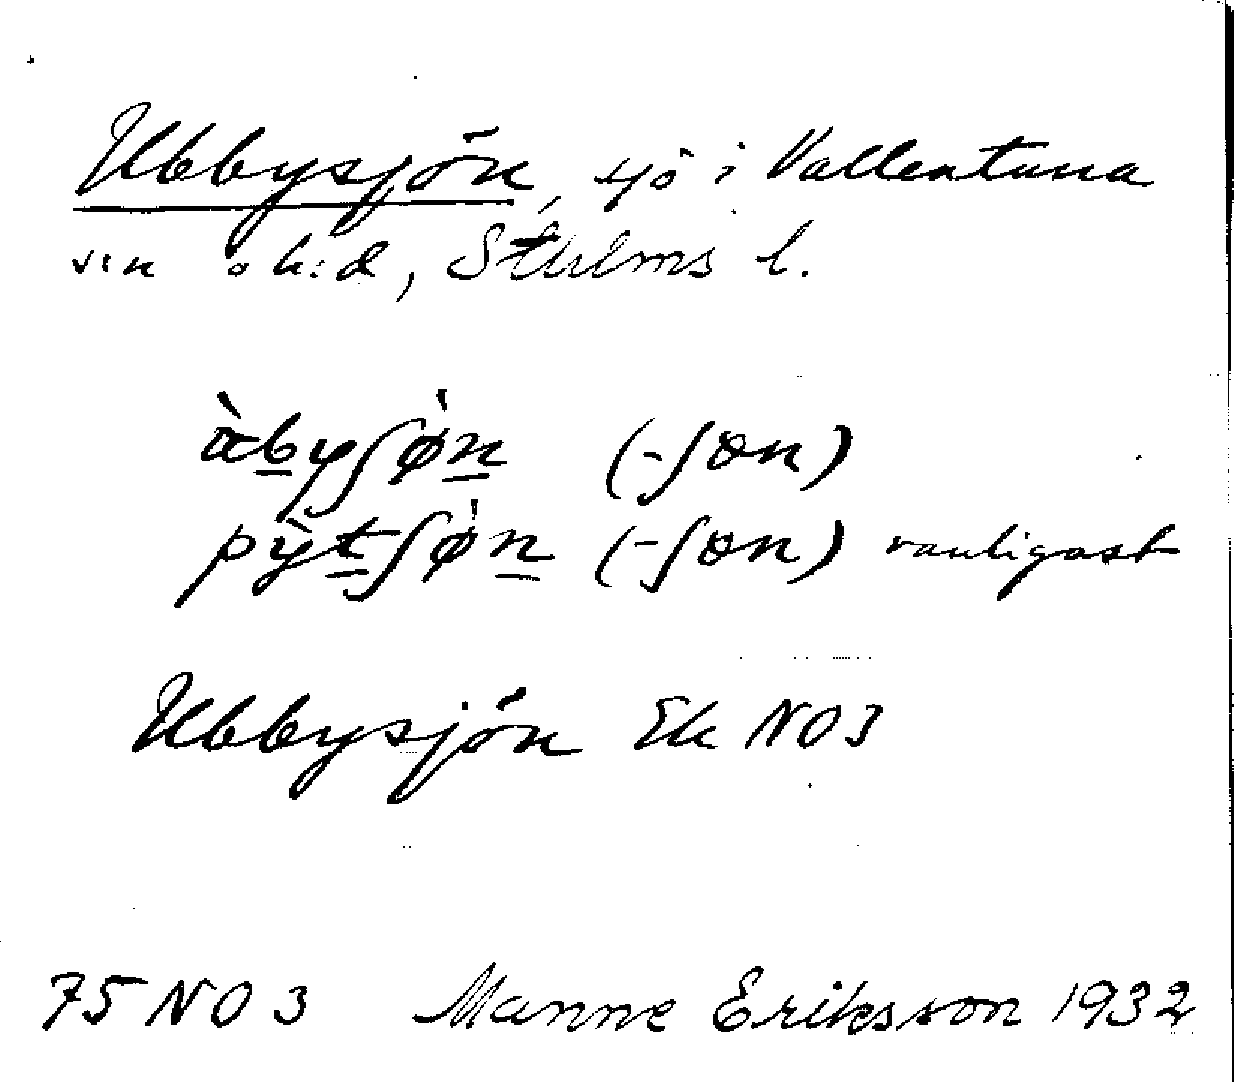 Ubbysjön, sjö i Vallentuna
sn o h:d, Sthlms l.
àbyʃø̀n (-ʃøn)
pỳtʃø̀n (-ʃøn) vanligast
Ubbysjön Ek NO3
75 NO 3 Manne Eriksson 1932